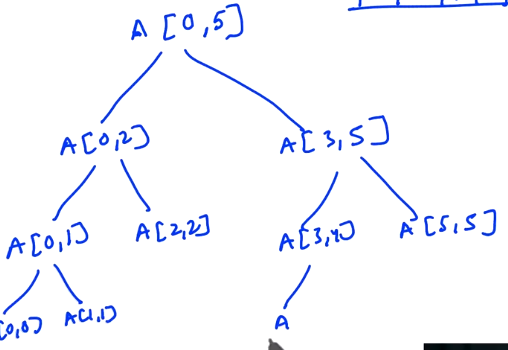 A [0,5]
A[0,2] A[3,5]
A[0,1] A[2,2] A[3,4] A[5,5]
[0,0] A[1,1] A